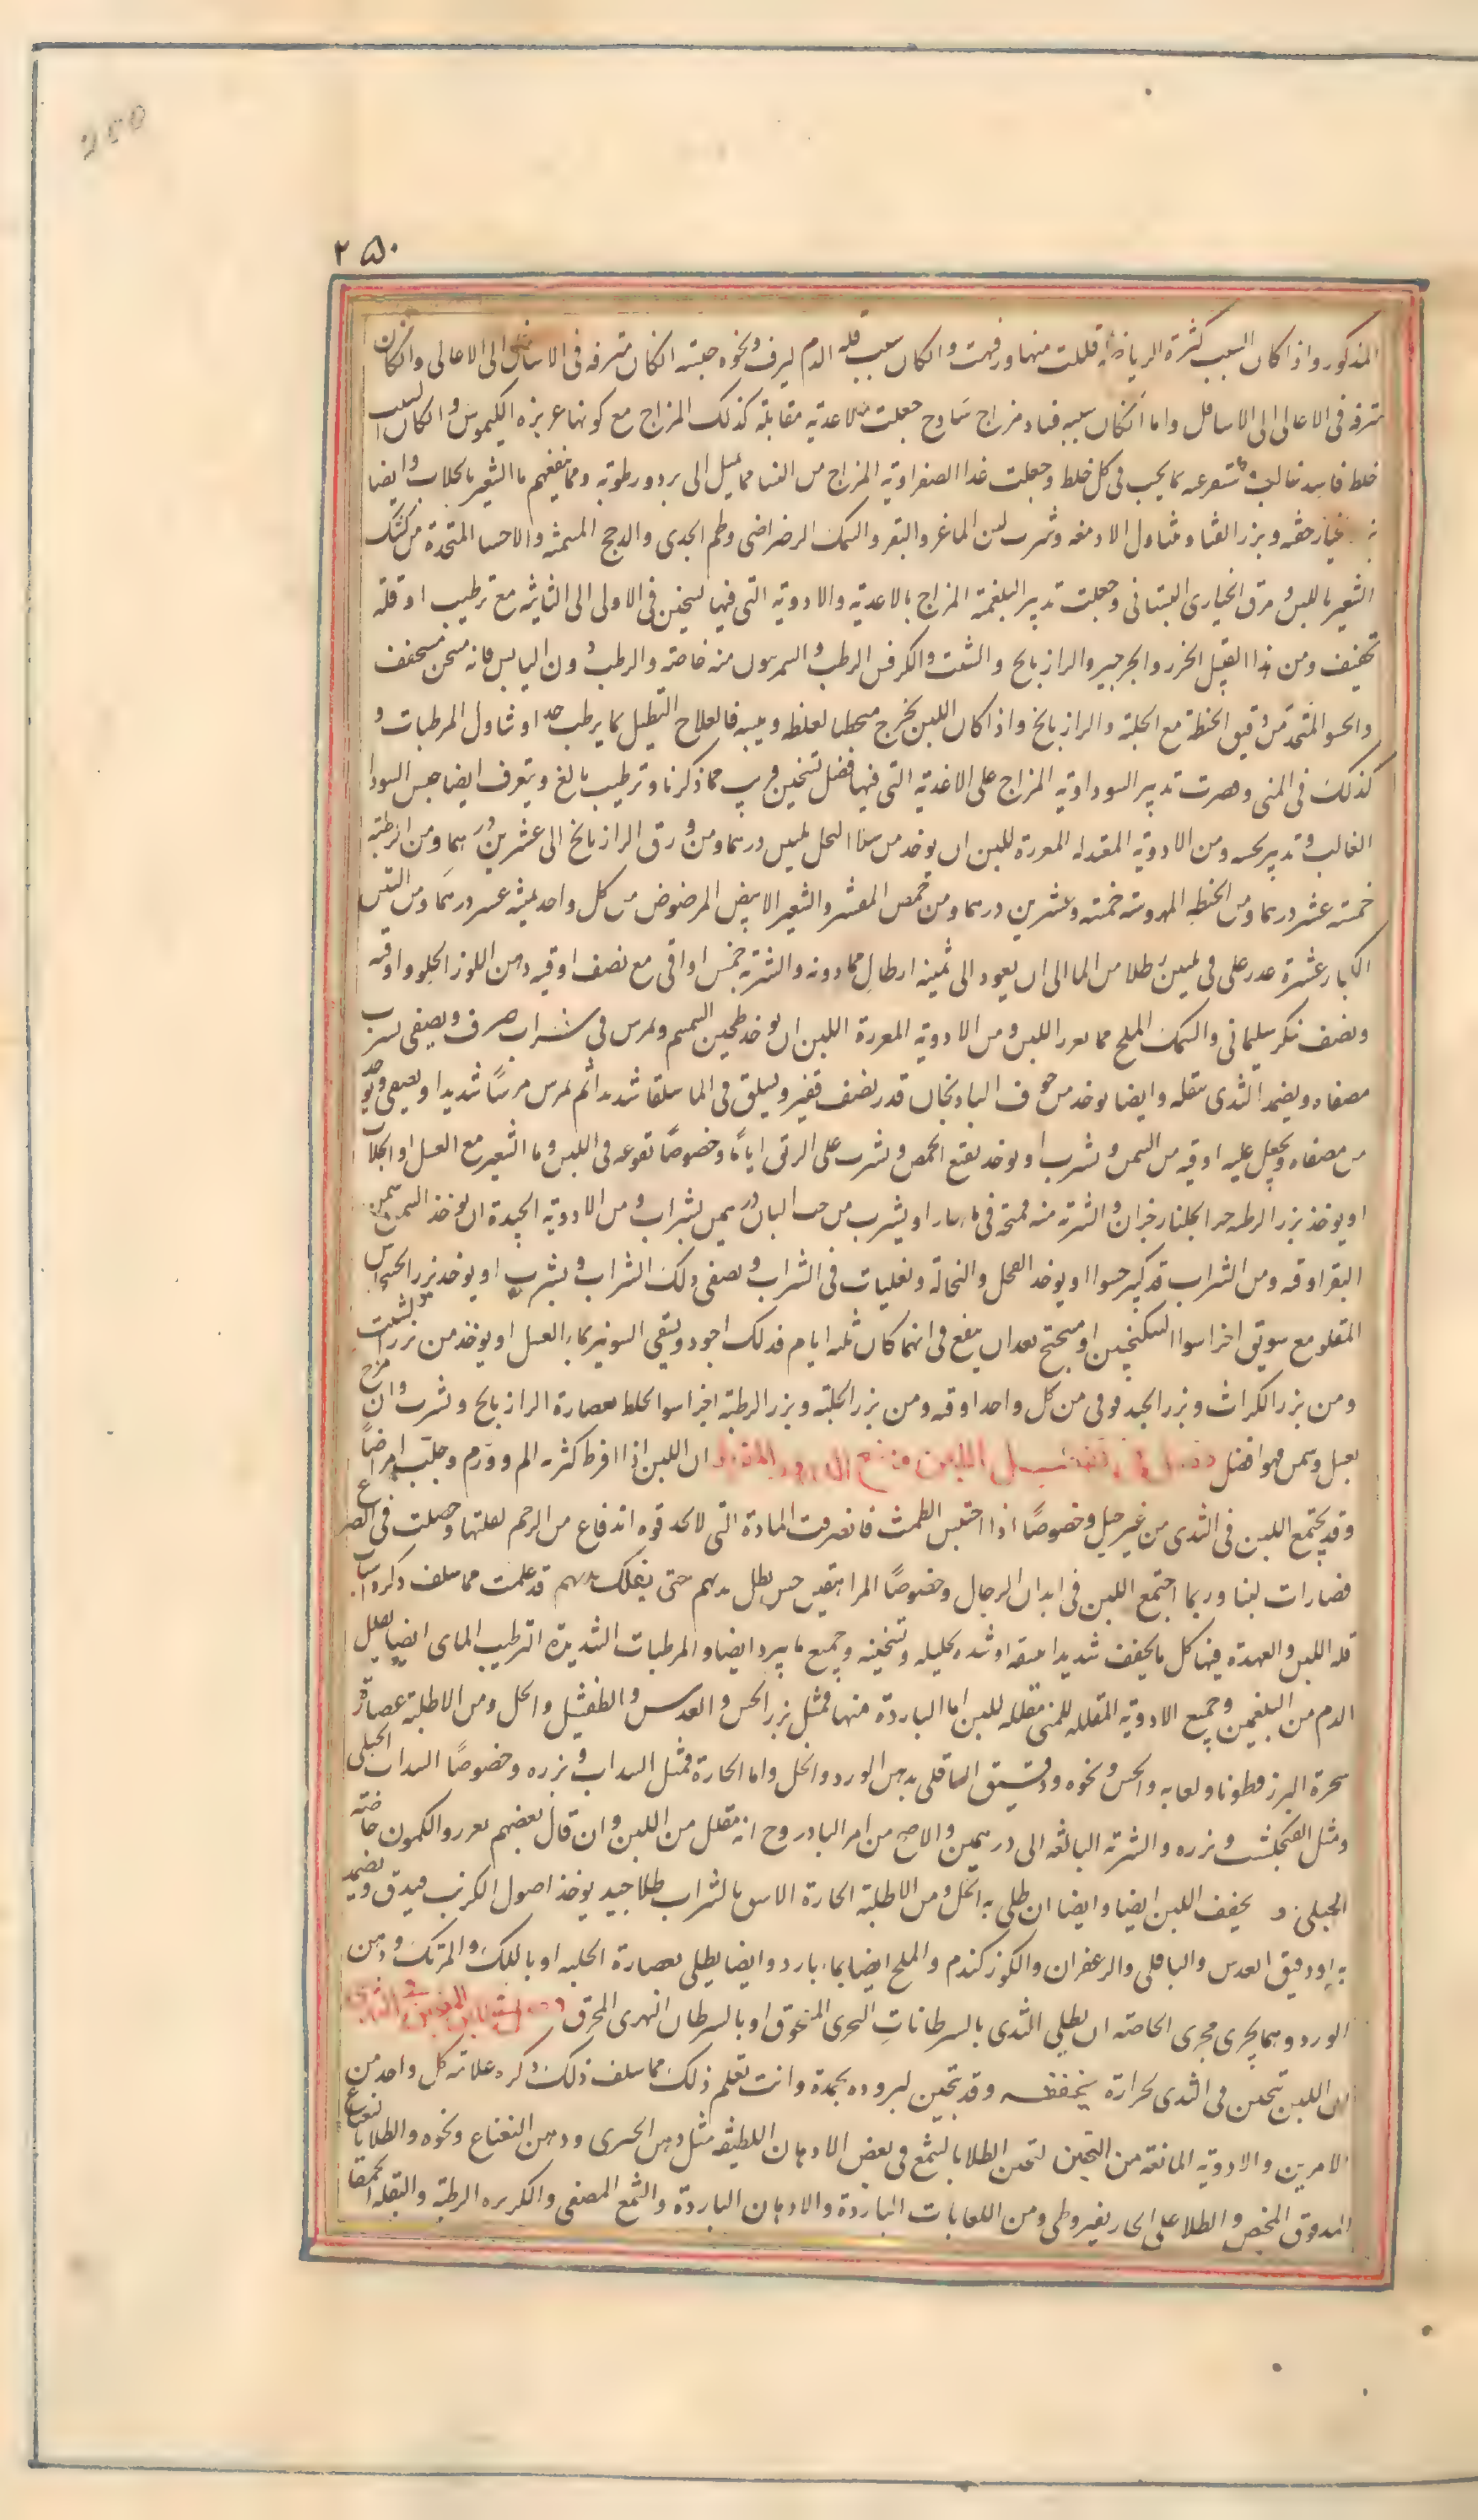 ٢٥٠
المذكور واذا كان السبب كثرة الرياضة قللت منها ورفهت والكان سبب قلة الدم لنزف ونحوه حبسته انكان منزفه فى الاسافل الى الاعالى وانكان
منزفه فى الاعالى الى الاسافل واما انكان سببه فساد مزاج ساذج جعلت الاغذية مقابلة كذلك المزاج مع كونها غريزة الكيموس والكان السبب
خلط فاسد غالب استفرغه بما يجب فى كل خلط وجعلت غذا الصفراوية المزاج من النسا مما يميل الى برد ورطوبة ومما ينفعهم ما الشعير بالجلاب وايضا
بزر خيار حقنه وبزر القثا وتناول الادمغه وشرب لبن الماعز والبقر والسمك الرضراضى ولحم الجدى والدجج المسمنه والاحسا المتخذة من كشك
الشعير باللبن ومرق الخبازى البستانى وجعلت تدبير البلغمية المزاج بالاغذية والادوية التى فيها تسخين فى الاولى الى الثانية مع ترطيب او قلة
تجفيف ومن هذا القبيل الجزر والجرجير والرازيانج والشبت والكرفس الرطب والسمرسون منه خاصة والرطب دون اليابس فانه مسخن مجفف
والحسو المتخذ من دقيق الحنطة مع الحلبة والرازيانج واذا كان اللبن يخرج متخيطا لغلظه ويبسه فالعلاج التنطيل بما يرطب جدا وتناول المرطبات و
كذلك فى المنى وقصرت تدبير السوداوية المزاج على الاغذية التى فيها فضل تسخين قريب مما ذكرنا وترطيب بالغ ويتعرف ايضا جنس السودا
الغالب وتدبر بحسبه ومن الادوية المعتدله المغزرة للبن ان يوخذ من سلا النخل ثلثين درهما ومن ورق الرازيانج الى عشرين درهما ومن الرطبة
خمسة عشر درهما ومن الحنطه المهروسه خمسة وعشرين درهما ومن الحمص المقشر والشعير الابيض المرضوض من كل واحد ثمنية عشر درهما ومن التين
الكبار عشرة عدد يغلى فى ثلثين رطلا من الما الى ان يعود الى ثمنية ارطال مما دونه والشربة خمس اواقى مع نصف اوقيه دهن اللوز الحلو واوقيه
ونصف سكر سليمانى والسمك المالح مما يغزر اللبن ومن الادوية المغزرة اللبن ان يوخذ طحين السمسم ويمرس فى شراب صرف ويصفى يشرب
مصفاه ويضمد الثدى بثفله وايضا يوخذ من جوف الباذنجان قدر نصف قفيز ويسلق فى الما سلقا شديدا ثم يمرس مرسا شديدا ويصفى ويوخذ
من مصفاه ويجعل عليه اوقيه من السمن ويشرب او يوخذ نقيع الحمص ويشرب على الريق اياما وخصوصا نقوعه فى اللبن وما الشعير مع العسل او الجلاب
او يوخذ بزر الرطبه جز الجلنار جزان والشربة منه قمحة فى ما حار او يشرب من حب البان درهمين بشراب ومن الادوية الجيدة ان يوخذ السمن سمن
البقر اوقيه ومن الشراب قدح كبير حسوا او يوخذ الفجل والنخالة ويغليان فى الشراب ويصفى ذلك الشراب ويشرب او يوخذ بزر الخشخاش
المقلو مع سويق اجزا سوا بالسكنجبين او ميبختج بعد ان ينقع فى ايهما كان ثلثه ايام فذلك اجود ويسقى الشونيز بماء العسل او يوخذ من بزر الشبت
ومن بزر الكراث وبزر الحندقوقى من كل واحد اوقيه ومن بزر الحلبة وبزر الرطبة اجزا سوا يخلط بعصارة الرازيانج ويشرب وان مزج
بعسل وسمن فهو افضل فصل فى تقليل اللبن ومنع الدرور المفرط ان اللبن اذا افرط كثرته الم وورم وجلب امراضا
وقد يجتمع اللبن فى الثدى من غير حبل وخصوصا اذا احتبس الطمث فانصرفت المادة التى لا تجد قوه اندفاع من الرحم لقلتها وحصلت فى الضرع
فصارت لبنا وربما اجتمع اللبن فى ابدان الرجال وخصوصا المراهقين حين يطل ثديهم حتى يفلك ثديهم قد علمت مما سلف ذكره اسباب
قله اللبن والعمدة فيها كل ما يجفف شديدا نشفه او شده تحليله وتسخينه وجميع ما يبرد ايضا والمرطبات الشديدة الترطيب الماى ايضا يقلل
الدم من البلغمين وجميع الادوية المقلله للمنى مقلله للبن اما الباردة منها فمثل بزر الخس والعدس والطفشيل والخل ومن الاطلية عصارة
شجرة البزرقطونا ولعابه والخس ونحوه ودقيق الباقلى بدهن الورد والخل واما الحارة فمثل السداب وبزره وخصوصا السداب الجبلى
ومثل الفنجنكشت وبزره والشربة البالغه الى درهمين والاصح من امر الباذروج انه مقلل من اللبن وان قال بعضهم يغزر والكمون خاصة
الجبلى و يجفف اللبن ايضا وايضا ان طلى به الخل ومن الاطلية الحارة الاس بالشراب طلا جيد يوخذ اصول الكرنب فيدق ويضمد
به او دقيق العدس والباقلى والزعفران والكوزكندم والملح ايضا بماء بارد وايضا يطلى بعصارة الحلبه او باللك والمرتك ودهن
الورد ومما يجرى مجرى الخاصة ان يطلى الثدى بالسرطانات البحرى المسحوق او بالسرطان النهرى المحرق فصل
ان اللبن يتجبن فى الثدى لحرارة يجففه وقد يتجبن لبروده بجمدة وانت تعلم ذلك مما سلف ذلك ذكره علامة كل واحد من
الامرين والادوية المانعة من التجبن لتجبن الطلا بالشمع فى بعض الادهان اللطيفه مثل دهن الخيرى ودهن النعناع ونحوه والطلا بالنعناع
المدقوق المخبص والطلا على الحار بقيروطى ومن اللعابات الباردة والادهان الباردة والشمع المصفى والكزبره الرطبة والبقلة الحمقا